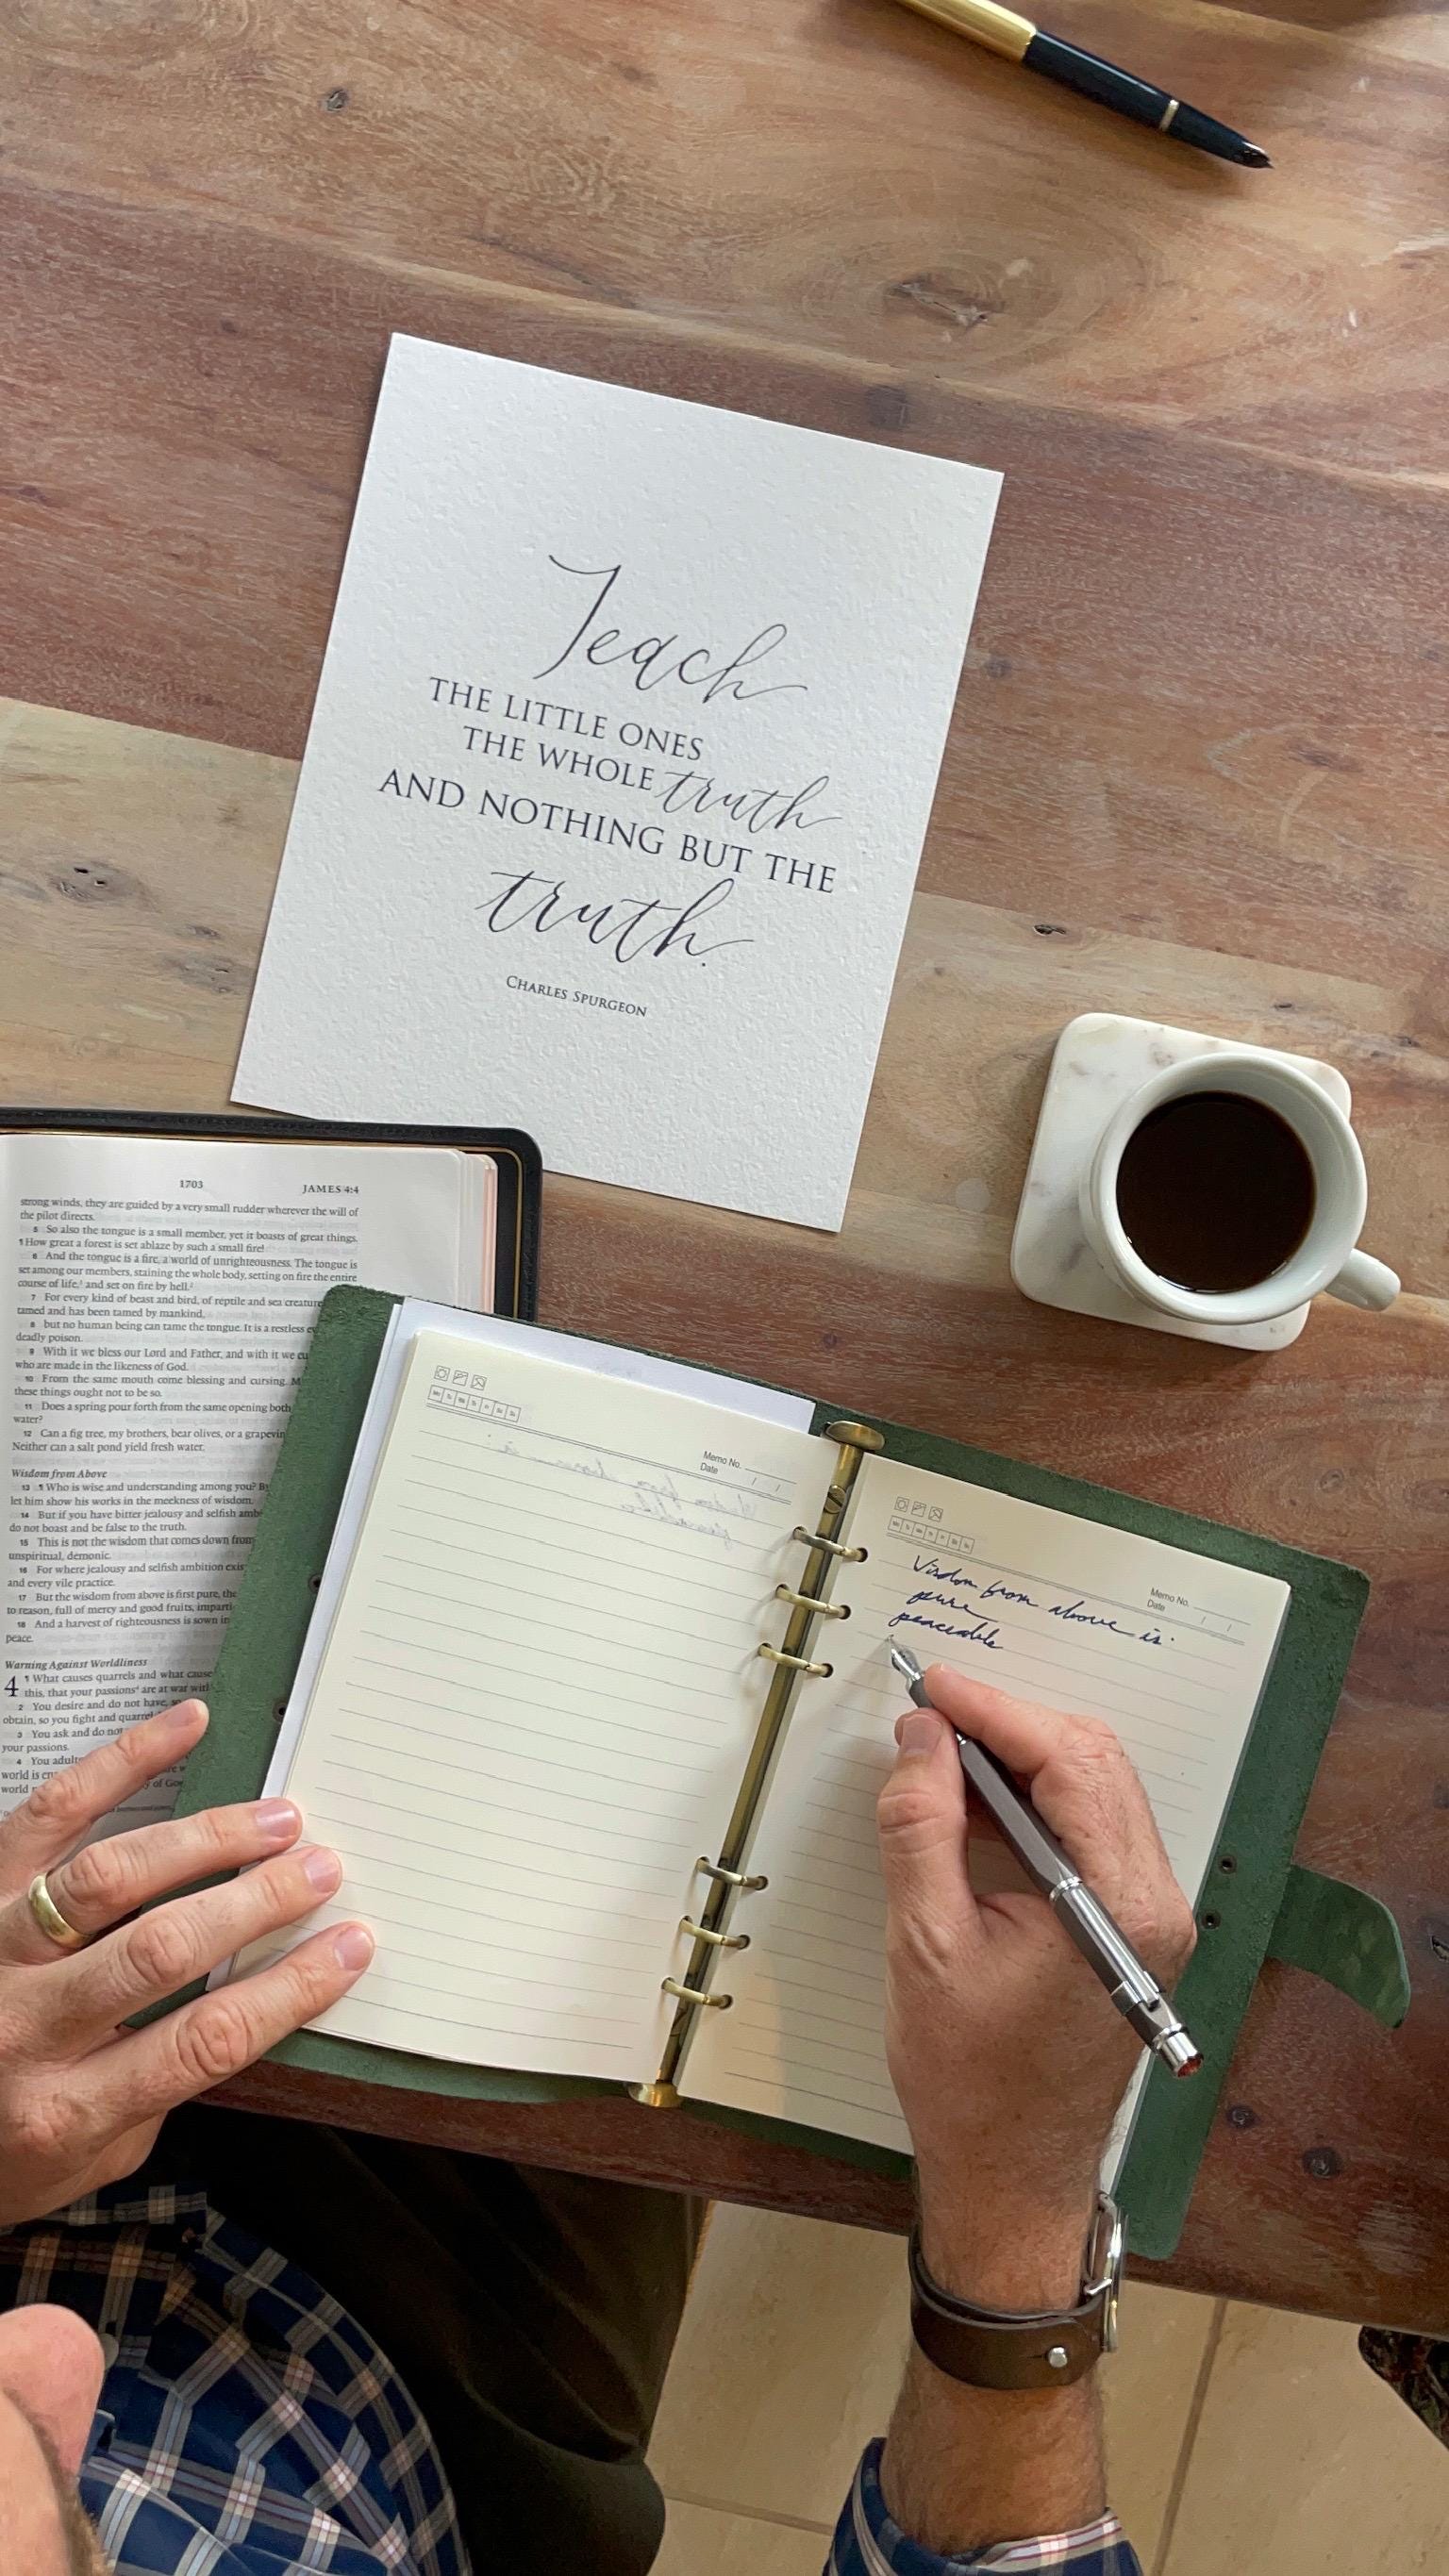 Teach
THE LITTLE ONES
THE WHOLE truth
AND NOTHING BUT THE
truth.
CHARLES SPURGEON
1703 JAMES 4:4
strong winds, they are guided by a very small rudder wherever the will of
the pilot directs.
5 So also the tongue is a small member, yet it boasts of great things.
¶ How great a forest is set ablaze by such a small fire!
6 And the tongue is a fire, a world of unrighteousness. The tongue is
set among our members, staining the whole body, setting on fire the entire
course of life, and set on fire by hell.
7 For every kind of beast and bird, of reptile and sea creature
tamed and has been tamed by mankind,
8 but no human being can tame the tongue. It is a restless
deadly poison.
9 With it we bless our Lord and Father, and with it we
who are made in the likeness of God.
10 From the same mouth come blessing and cursing.
these things ought not to be so.
11 Does a spring pour forth from the same opening both
water?
12 Can a fig tree, my brothers, bear olives, or a
Neither can a salt pond yield fresh water.
Wisdom from Above
13 ¶ Who is wise and understanding among you?
let him show his works in the meekness of wisdom.
14 But if you have bitter jealousy and selfish
do not boast and be false to the truth.
15 This is not the wisdom that comes down from
unspiritual, demonic.
16 For where jealousy and selfish ambition
and every vile practice.
17 But the wisdom from above is first pure,
to reason, full of mercy and good fruits,
18 And a harvest of righteousness is sown in
peace.
Warning Against Worldliness
4 ¶ What causes quarrels and what
this, that your passions are at war
2 You desire and do not have,
obtain, so you fight and
3 You ask and do not
your passions.
4 You
world is
world
of
Memo No.
Date / /
Memo No.
Date / /
Wisdom from above is:
pure
peaceable